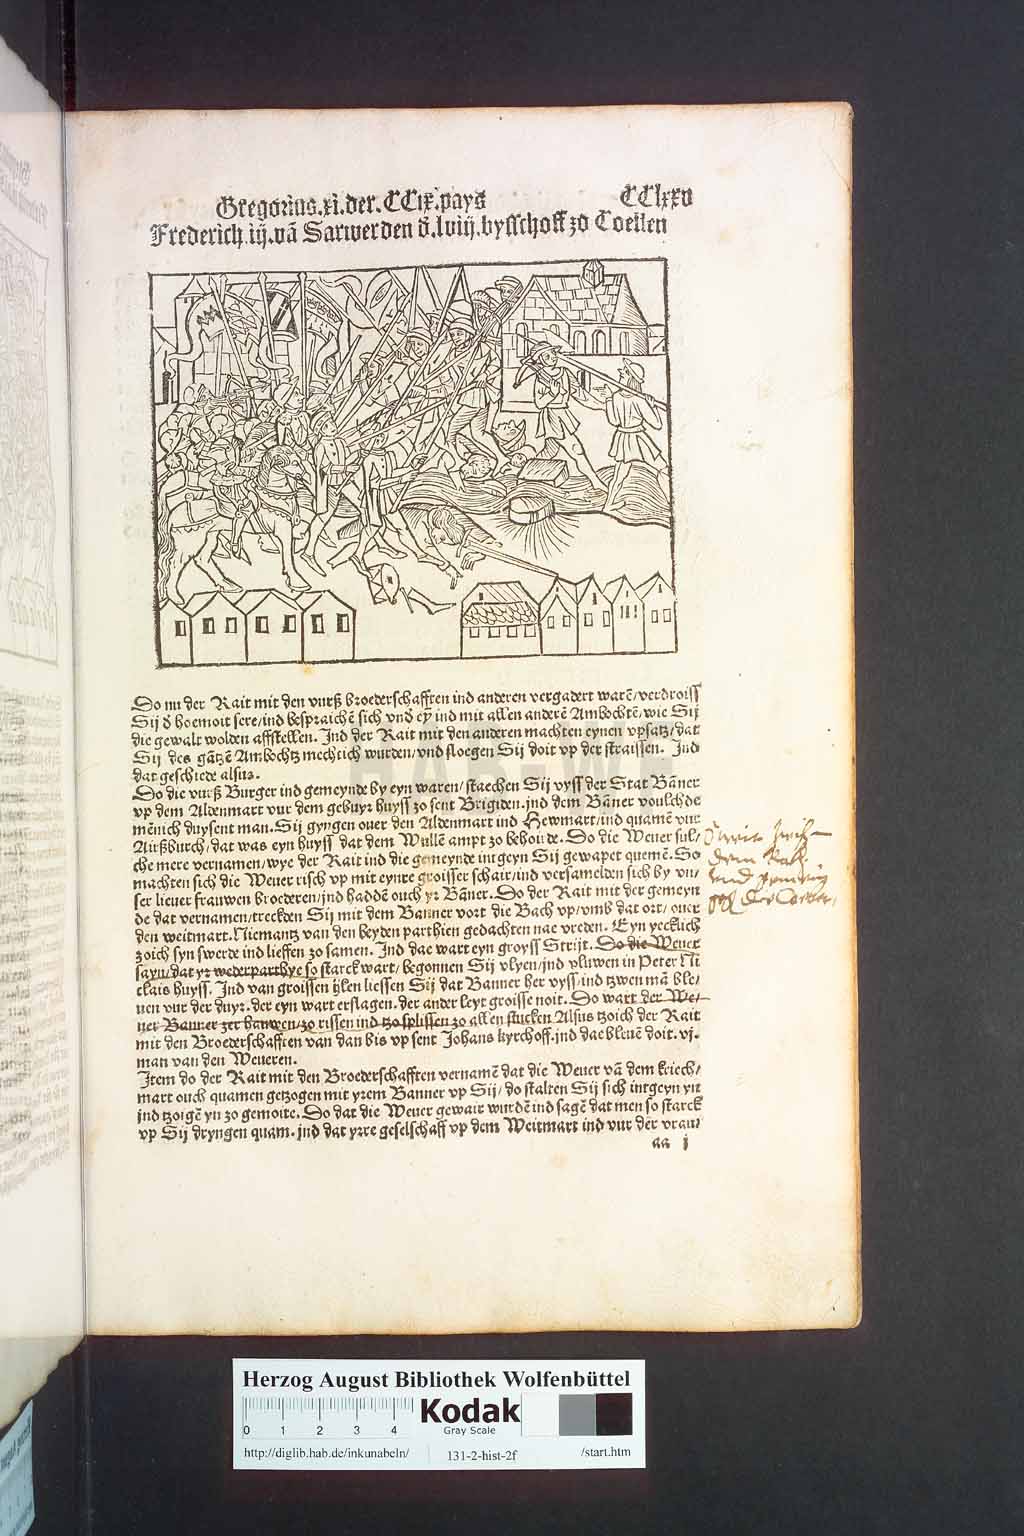 Gregorius.xi.der.CCix.pays CClxxv
Frederich.iij.vā Sarwerden d̄.lviij.bysschoff zo Coellen
Do nu der Rait mit den vurß broederschafften ind anderen vergadert warē/verdroiss
Sij d hoemoit sere/ind bespraichē sich vnd' eȳ ind mit allen anderē Ambochtē/wie Sij
die gewalt wolden affstellen. Ind der Rait mit den anderen machten eynen vpsatz/dat
Sij des gātzē Ambochtz mechtich wurden/vnd sloegen Sij doit vp der straissen. Ind
dat geschiede alsus.
Do die vurß Burger ind gemeynde by eyn waren/staechen Sij vyss der Stat Bāner
vp dem Aldenmart vur dem gebuyr huyss zo sent Brigiden.ind dem Bāner voulchde
mēnich duysent man. Sij gyngen ouer den Aldenmart ind Hewmart/ind quamē vur
Airßburch/dat was eyn huyss dat dem Wullē ampt zo behoirde. Do die Weuer sul/
che mere vernamen/wye der Rait ind die gemeynde intgeyn Sij gewapet quemē. So
machten sich die Weuer risch vp mit eynre groisser schair/ind versamelden sich by vn/
ser lieuer frauwen broederen/ind haddē ouch yr Bāner. Do der Rait mit der gemeyn
de dat vernamen/treckden Sij mit dem Banner vort die Bach vp/vmb dat ort/ouer
den weitmart. Niemantz van den beyden parthien gedachten nae vreden. Eyn yecklich
zoich syn swerde ind lieffen zo samen. Ind dae wart eyn groyss Strijt. Do die Weuer
sayn/dat yr wederparthye so starck wart/begonnen Sij vlyen/ind vluwen in Peter Ni
clais huyss. Ind van groissen ijlen liessen Sij dat Banner her vyss/ind tzwen mā ble/
uen vur der duyr. der eyn wart erslagen. der ander leyt groisse noit. Do wart der We/
uer Banner zer hauwen/zo rissen ind tzo splissen zo allen stucken Alsus tzoich der Rait
mit den Broederschafften van dan bis vp sent Johans kyrchoff.ind dae bleuē doit.vj.
man van den Weueren.
Item do der Rait mit den Broederschafften vernamē dat die Weuer vā dem kriech/
mart ouch quamen getzogen mit yrem Banner vp Sij/do stalten Sij sich intgeyn yn
ind tzoigē yn zo gemoite. Do dat die Weuer gewair wurdē ind sagē dat men so starck
vp Sij dryngen quam. ind dat yrre geselschaff vp dem Weitmart ind vur der vrau/
aa j
Herzog August Bibliothek Wolfenbüttel
0 1 2 3 4
Kodak
Gray Scale
http://diglib.hab.de/inkunabeln/ 131-2-hist-2f /start.htm